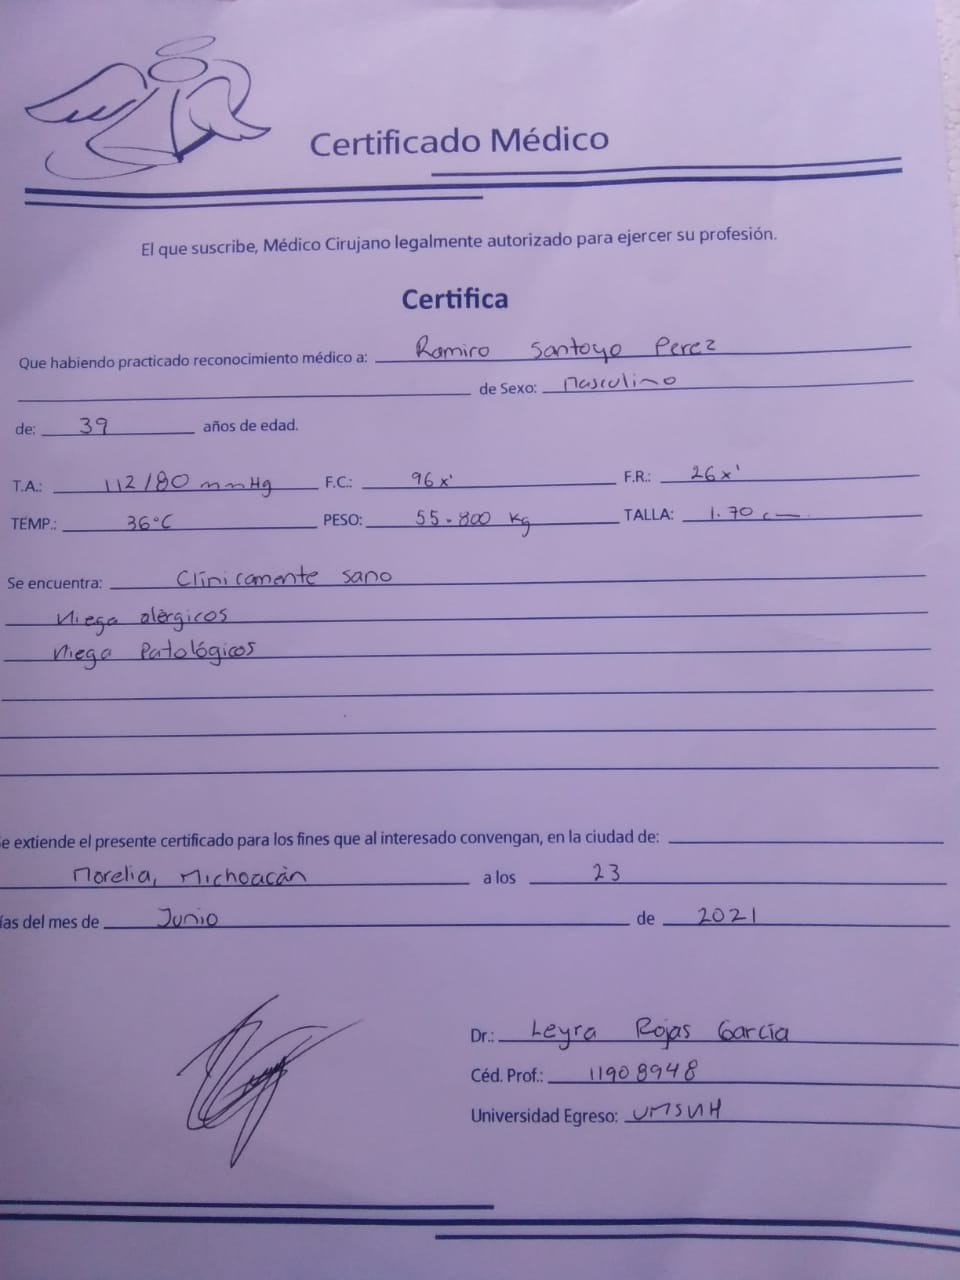 Certificado Médico
El que suscribe, Médico Cirujano legalmente autorizado para ejercer su profesión.
Certifica
Que habiendo practicado reconocimiento médico a: Ramiro Santoyo Perez
de Sexo: Masculino
de: 39 años de edad.
T.A.: 112/80 mmHg F.C.: 96 x' F.R.: 26 x'
TEMP.: 36°C PESO: 55.800 Kg TALLA: 1.70 cm
Se encuentra: Clínicamente sano
Niega alérgicos
Niega Patológicos
e extiende el presente certificado para los fines que al interesado convengan, en la ciudad de:
Morelia, Michoacán a los 23
ías del mes de Junio de 2021
Dr.: Leyra Rojas García
Céd. Prof.: 11908948
Universidad Egreso: UMSNH